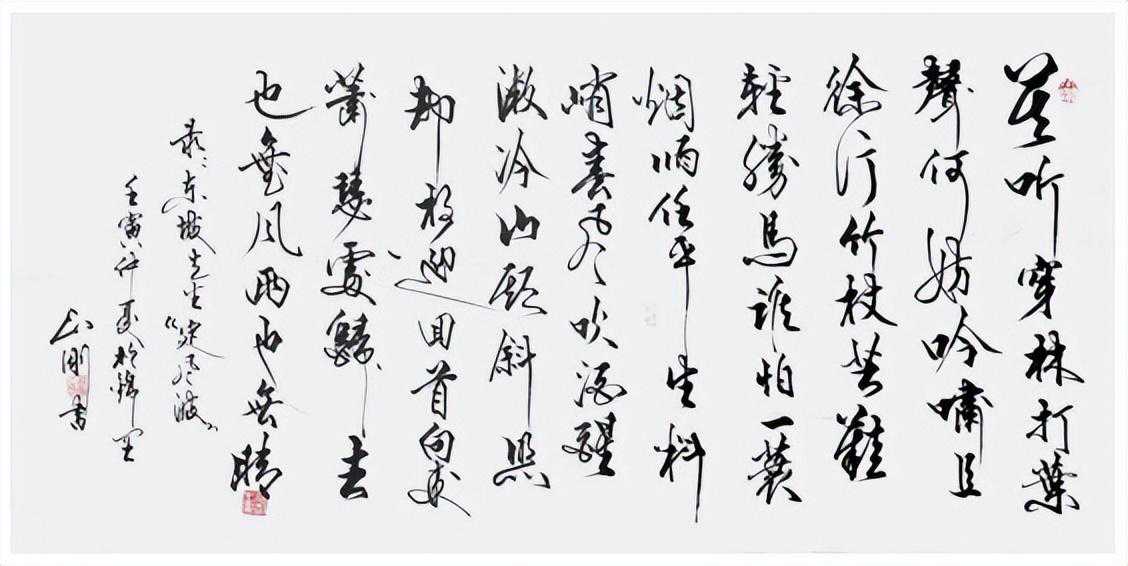 莫听穿林打葉
聲何妨吟嘯且
徐行竹杖芒鞋
輕勝馬誰怕一蓑
烟雨任平生料
峭春风吹酒醒
微冷山頭斜照
却相迎回首向来
蕭瑟處歸去
也無风雨也無晴
录东坡先生《定风波》
壬寅仲夏於锦里
刚书